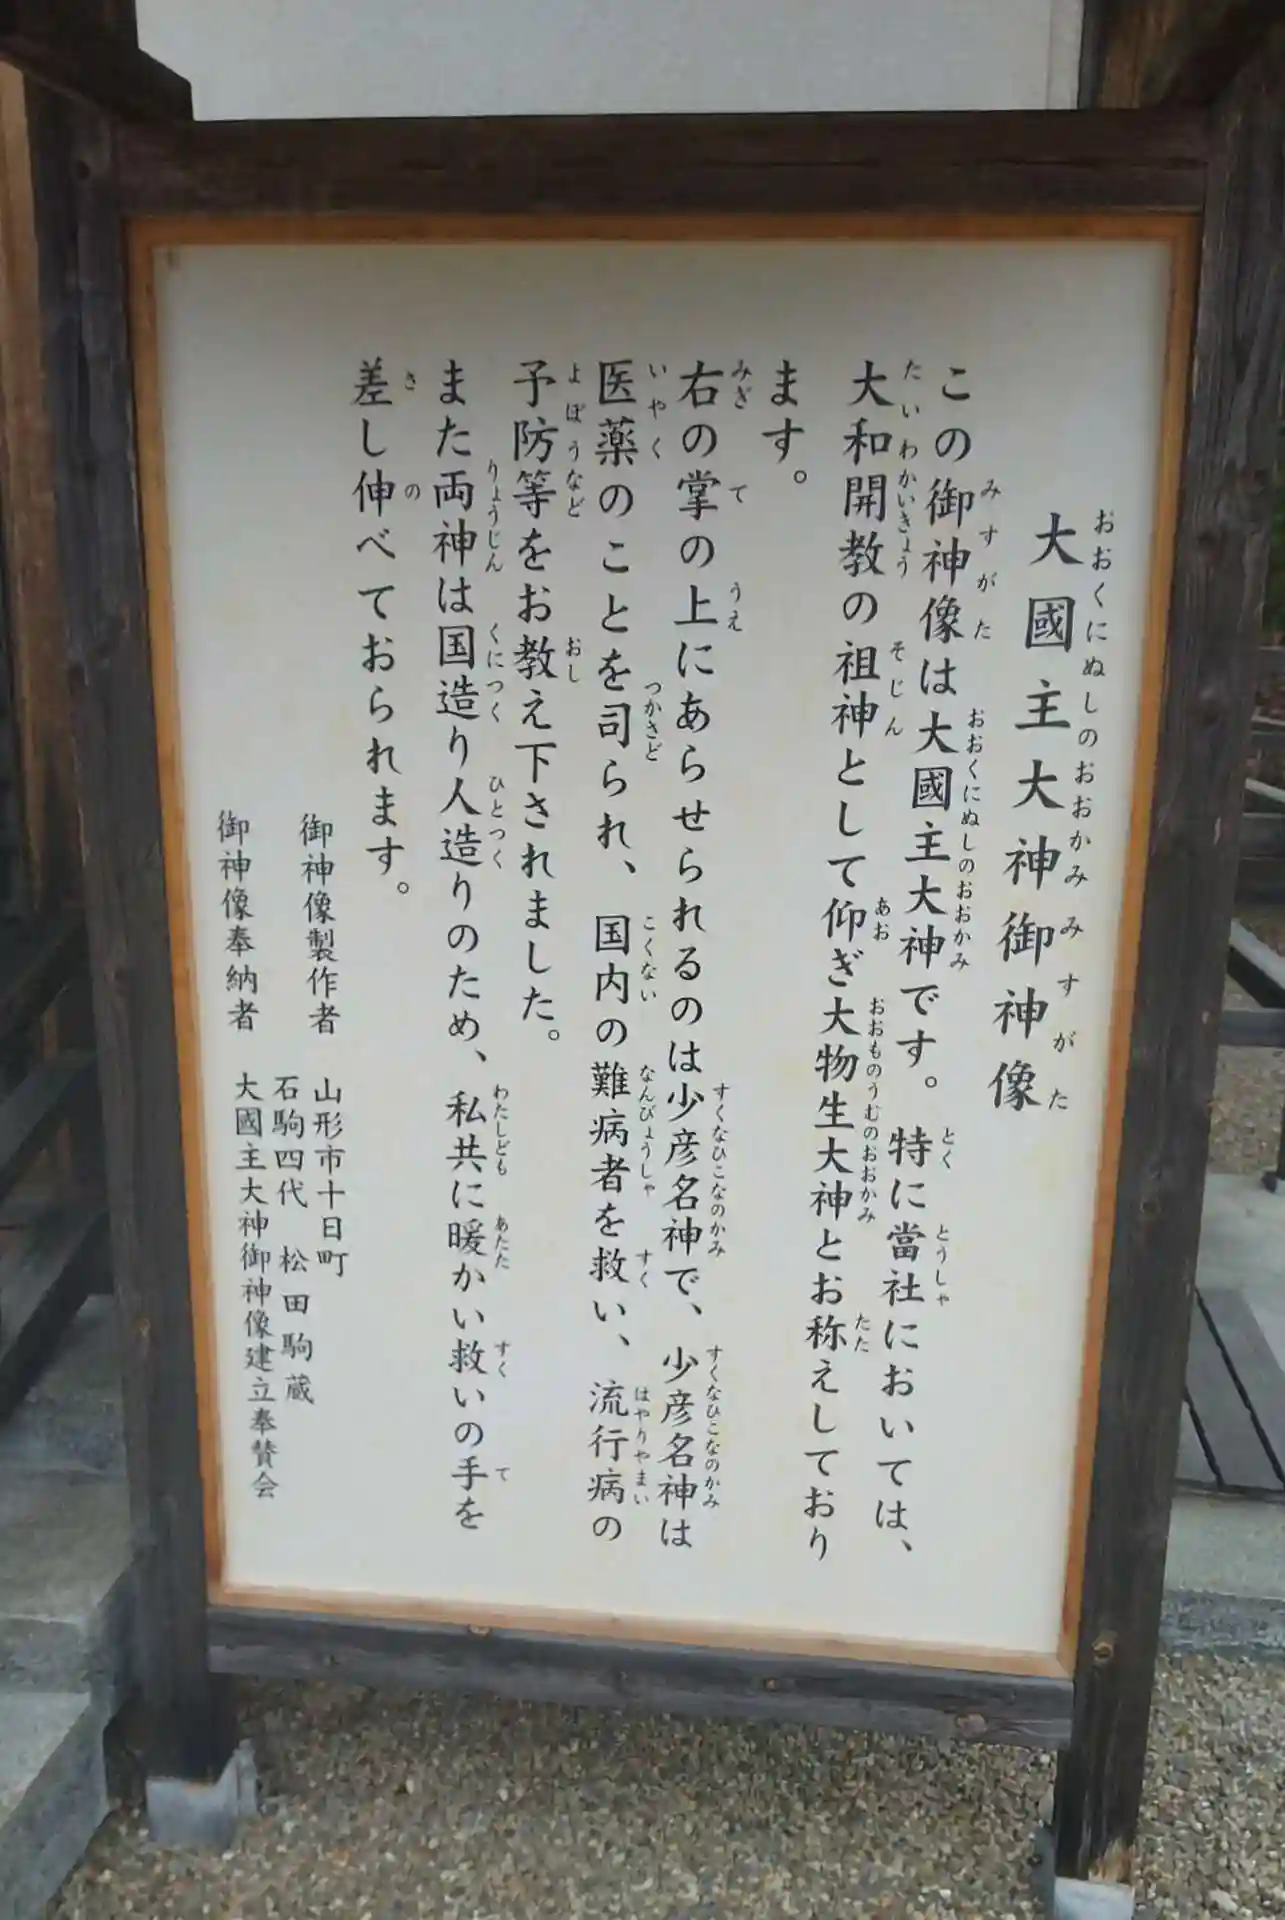 大國主大神御神像
この御神像は大國主大神です。特に當社においては、
大和開教の祖神として仰ぎ大物生大神とお称えしており
ます。
右の掌の上にあらせられるのは少彦名神で、少彦名神は
医薬のことを司られ、国内の難病者を救い、流行病の
予防等をお教え下されました。
また両神は国造り人造りのため、私共に暖かい救いの手を
差し伸べておられます。
御神像製作者 山形市十日町
石駒四代 松田駒蔵
御神像奉納者 大國主大神御神像建立奉賛会